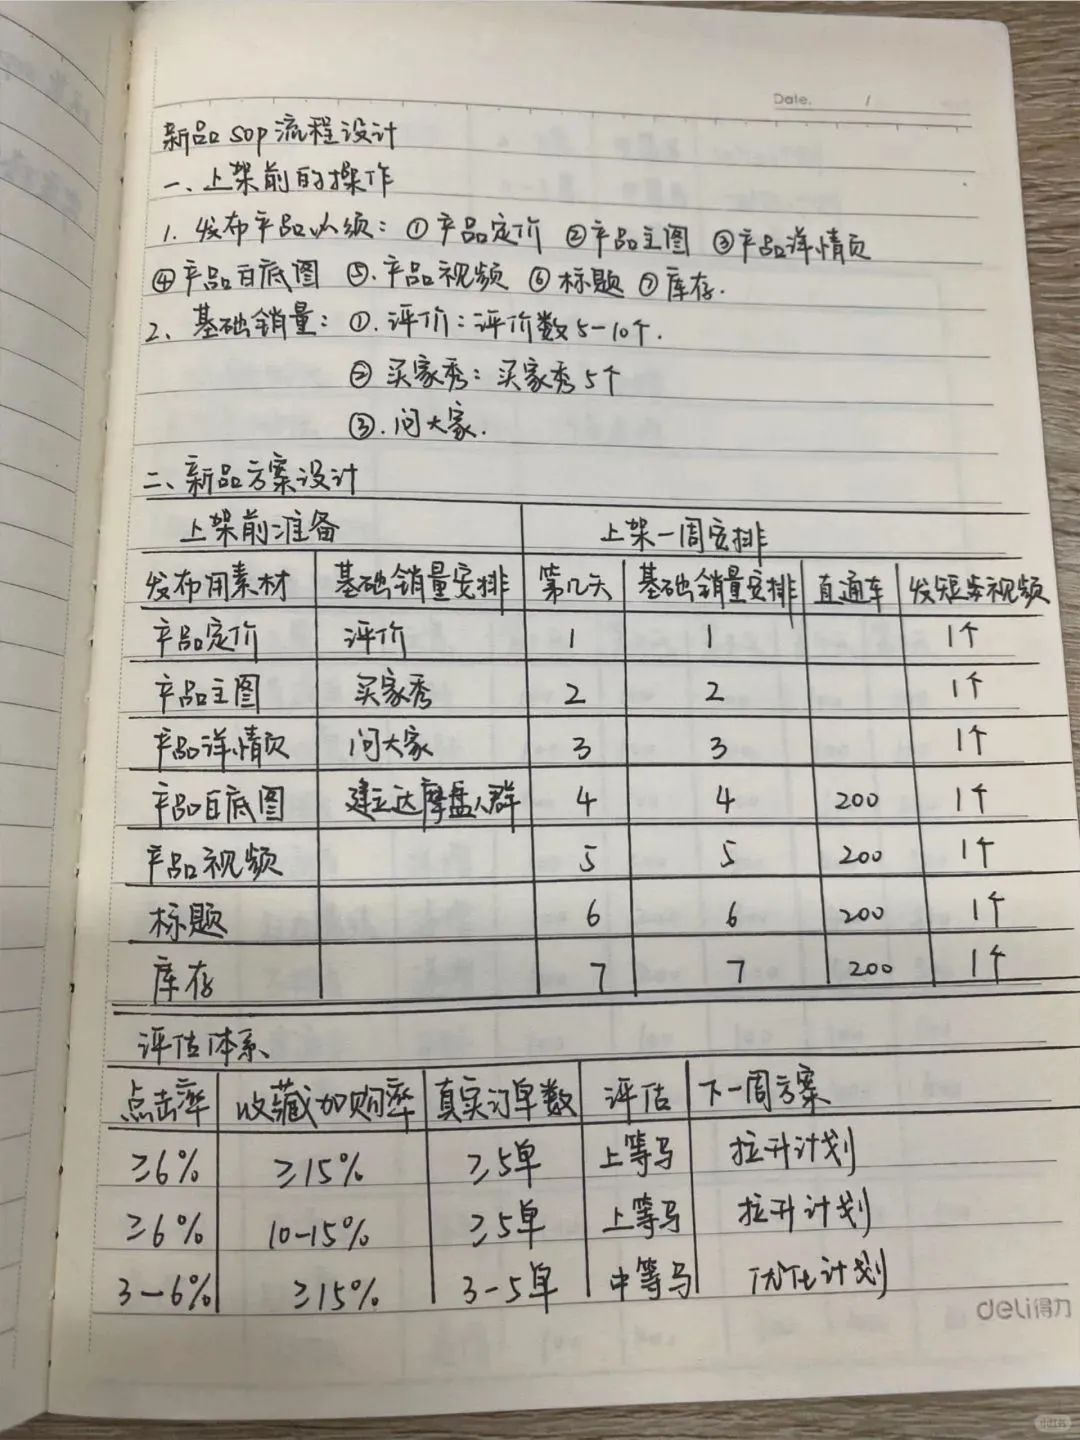 Date. /
新品SOP流程设计
一、上架前的操作
1. 发布产品必须：①产品定价 ②产品主图 ③产品详情页
④产品白底图 ⑤.产品视频 ⑥标题 ⑦库存.
2、基础销量：①.评价：评价数5-10个.
② 买家秀：买家秀5个
③.问大家.
二、新品方案设计
上架前准备 上架一周安排
发布用素材 基础销量安排 第几天 基础销量安排 直通车 发短实视频
产品定价 评价 1 1 1个
产品主图 买家秀 2 2 1个
产品详情页 问大家 3 3 1个
产品白底图 建立达摩盘人群 4 4 200 1个
产品视频 5 5 200 1个
标题 6 6 200 1个
库存 7 7 200 1个
评估体系、
点击率 收藏加购率 真实订单数 评估 下一周方案
≥6% ≥15% ≥5单 上等马 拉升计划
≥6% 10-15% ≥5单 上等马 拉升计划
3-6% ≥15% 3-5单 中等马 优化计划
deli得力
小红书